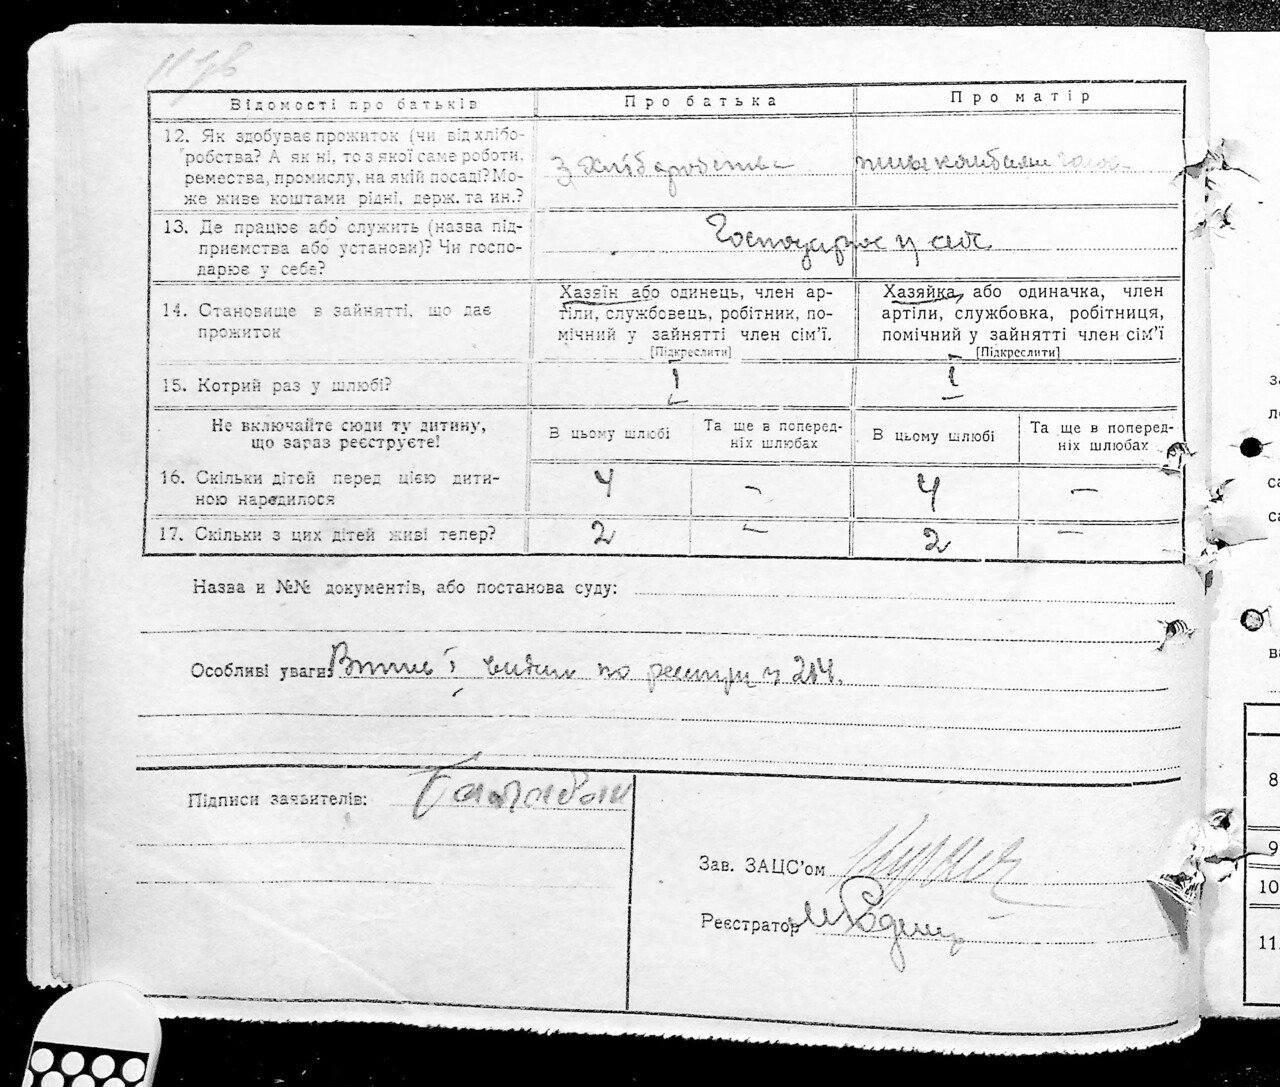 Відомості про батьків
Про батька
Про матір
12. Як здобуває прожиток (чи від хлібо-
робства? А як ні, то з якої саме роботи,
ремества, промислу, на якій посаді? Мо-
же живе коштами рідні, держ. та ин.?
З хліборобства
13. Де працює або служить (назва під-
приємства або установи)? Чи госпо-
дарює у себе?
Господарює у себе
14. Становище в зайнятті, що дає
прожиток
Хазяїн або одинець, член ар-
тіли, службовець, робітник, по-
мічний у зайнятті член сім'ї.
[Підкреслити]
Хазяйка, або одиначка, член
артіли, службовка, робітниця,
помічний у зайнятті член сім'ї
[Підкреслити]
15. Котрий раз у шлюбі?
1
1
Не включайте сюди ту дитину,
що зараз реєструєте!
В цьому шлюбі
Та ще в поперед-
ніх шлюбах
В цьому шлюбі
Та ще в поперед-
ніх шлюбах
16. Скільки дітей перед цією дити-
ною народилося
4
–
4
–
17. Скільки з цих дітей живі тепер?
2
–
2
–
Назва и №№ документів, або постанова суду:
Особливі уваги: по реєстру 214.
Підписи заявителів:
Зав. ЗАЦС'ом
Реєстратор
з
л
са
са
ва
8
9
10
11.